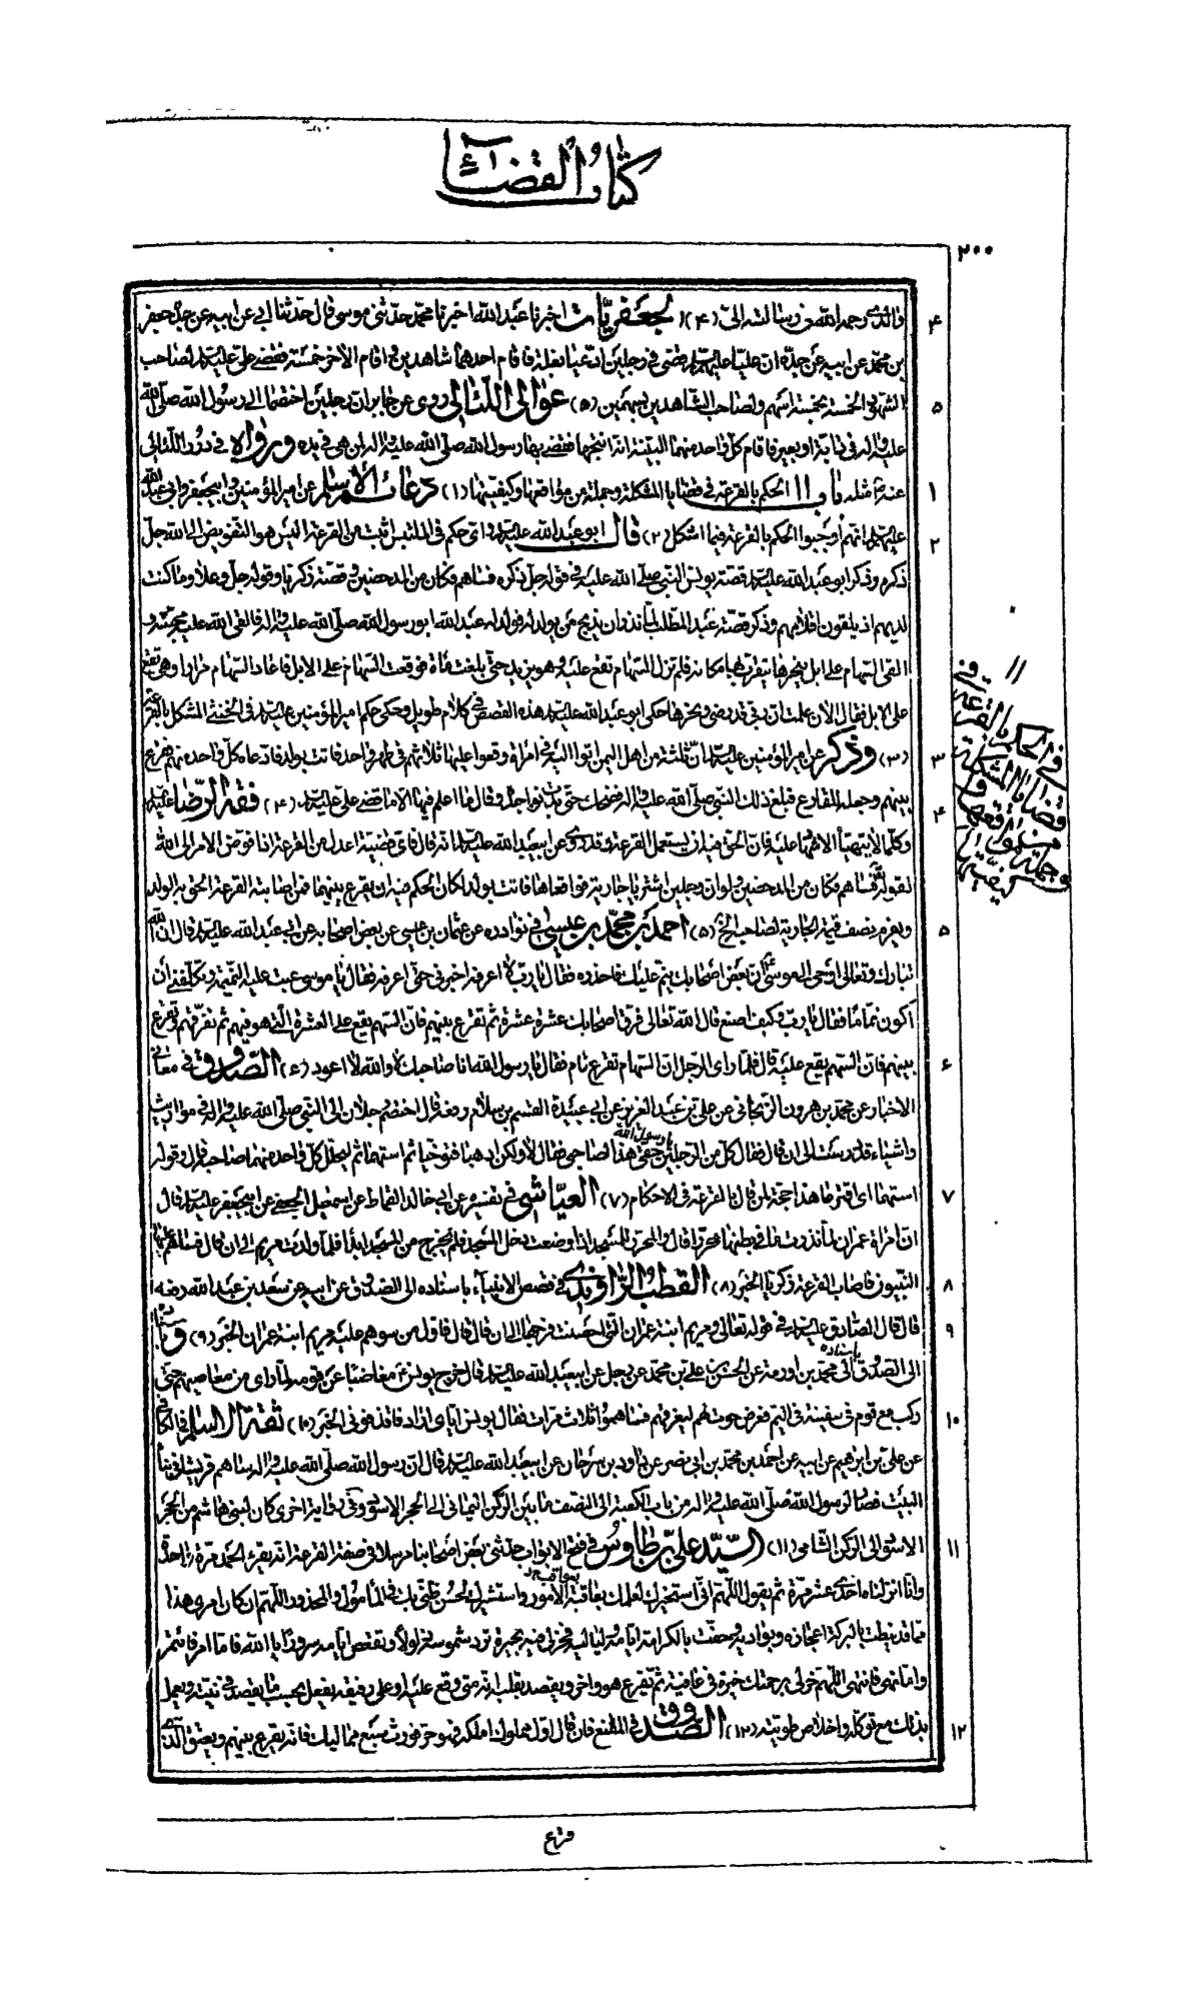 كتاب القضاء
٢٠٠
والدى رحمه الله فى رسالته الىّ (٤) الجعفريات اخبرنا عبد الله اخبرنا محمد حدثنى موسى قال حدثنا ابى عن ابيه عن جده جعفر
بن محمد عن ابيه عن جده ان عليا عليه السلم قضى فى رجلين ادعيا بغلة فاقام احدهما شاهدين و اقام الاخر خمسة فقضى على عليه السلم لصاحب
الشهود الخمسة بخمسة اسهم ولصاحب الشاهدين بسهمين (٥) عوالى اللئالى روى عن جابر ان رجلين اختصما الى رسول الله صلى الله
عليه واله فى دابة او بعير فاقام كل واحد منهما البينة انه انتجها فقضى بها رسول الله صلى الله عليه واله لمن هى فى يده ورواه فى درر اللئالى
عنه مثله باب ١١ الحكم بالقرعة فى قضايا المشكلة وجملة من مواقعها وكيفيتها (١) دعائم الاسلام عن امير المؤمنين وابيجعفر وابى عبد الله
عليهم السلم انهم اوجبوا الحكم بالقرعة فيما اشكل (٢) قال ابو عبد الله عليه السلم واى حكم فى الملتبس اثبت من القرعة اليس هو التفويض الى الله جل
ذكره وذكر ابو عبد الله عليه السلم قصة يونس النبى صلى الله عليه فى قوله جل ذكره فساهم فكان من المدحضين وقصة زكريا وقوله جل وعلا وما كنت
لديهم اذ يلقون اقلامهم وذكر قصة عبد المطلب لما نذر ان يذبح من يولد له فولد له عبد الله ابو رسول الله صلى الله عليه واله فالقى الله عليه محبته و
القى السهام على ابل ينحرها يتقرب بها مكانه فلم تزل السهام تقع عليه وهو يزيد حتى بلغت مائة فوقعت السهام على الابل فاعاد السهام مرارا وهى تقع
على الابل فقال الان علمت ان ربى قد رضى ونحرها حكى ابو عبد الله عليه السلم هذه القصص فى كلام طويل وحكى حكم امير المؤمنين عليه السلم فى الخنثى المشكل بالقرعة
(٣) وذكر عن امير المؤمنين عليه السلم ان ثلثة من اهل اليمن اتوا اليه فى امراة وقعوا عليها ثلاثتهم فى طهر واحد فاتت بولد فادعاه كل واحد منهم فقرع
بينهم وجعله للقارع فبلغ ذلك النبى صلى الله عليه واله فضحك حتى بدت نواجذه وقال ما اعلم فيها الا ما قضى على عليه السلم (٤) فقه الرضا عليه السلم
وكلما لا يتهيأ الاشهاد عليه فان الحق فيه ان يستعمل القرعة وقد روى عن ابيعبد الله عليه السلم انه قال فاى قضية اعدل من القرعة اذا فوض الامر الى الله
لقوله فساهم فكان من المدحضين ولو ان رجلين اشتريا جارية فواقعاها فاتت بولد لكان الحكم فيه ان يقرع بينهما فمن اصابته القرعة الحق به الولد
ويغرم نصف قيمة الجارية لصاحبه الخ (٥) احمد بن محمد بن عيسى فى نوادره عن عثمان بن عيسى عن بعض اصحابه عن ابى عبد الله عليه السلم قال ان الله
تبارك وتعالى اوحى الى موسى ان بعض اصحابك ينم عليك فاحذره فقال يا رب لا اعرفه اخبرنى حتى اعرفه فقال يا موسى عبت عليه النميمة وتكلفنى ان
اكون نماما فقال يا رب وكيف اصنع قال الله تعالى فرق اصحابك عشرة عشرة ثم تقرع بينهم فان السهم يقع على العشرة التى هو فيهم ثم تفرقهم وتقرع
بينهم فان السهم يقع عليه قال فلما راى الرجل ان السهام تقرع قام فقال يا رسول الله انا صاحبك لا والله لا اعود (٦) الصدوق فى معانى
الاخبار عن محمد بن هرون الزنجانى عن على بن عبد العزيز عن ابى عبيدة القسم بن سلام رفعه قال اختصم رجلان الى النبى صلى الله عليه واله فى مواريث
واشياء قد درست الى ان قال فقال كل من الرجلين يا رسول الله حقى هذا لصاحبى فقال لا ولكن اذهبا فتوخيا ثم استهما ثم ليحلل كل واحد منهما صاحبه قال وقوله
استهما اى اقترعا هذا حجة لمن قال بالقرعة فى الاحكام (٧) العياشى فى تفسيره عن ابى خالد القماط عن اسمعيل الجعفى عن ابيجعفر عليه السلم قال
ان امراة عمران لما نذرت ما فى بطنها محررا قال والمحرر للمسجد اذا وضعته دخل المسجد فلم يخرج من المسجد ابدا فلما ولدت مريم الى ان قال فساهم عليها
النبيون فاصاب القرعة زكريا الخبر (٨) القطب الراوندى فى قصص الانبياء باسناده الى الصدوق عن ابيه عن سعد بن عبد الله رفعه
قال قال الصادق عليه السلم فى قوله تعالى ومريم ابنة عمران التى احصنت فرجها الى ان قال قال فاول من سوهم عليه مريم ابنة عمران الخبر (٩) وباسناده
الى الصدوق باسناده الى محمد بن اورمة عن الحسن بن على بن محمد عن رجل عن ابيعبد الله عليه السلم قال خرج يونس مغاضبا عن قومه لما راى من معاصيهم حتى
ركب مع قوم فى سفينة فى اليم فعرض حوت لهم ليغرقهم فساهموا ثلاث مرات فقال يونس اياى اراد فاقذفونى الخبر (١٠) ثقة الاسلام فى الكافى
عن على بن ابرهيم عن ابيه عن احمد بن محمد بن ابى نصر عن داود بن سرحان عن ابيعبد الله عليه السلم قال ان رسول الله صلى الله عليه واله ساهم قريشا فى بناء
البيت فصار لرسول الله صلى الله عليه واله من باب الكعبة الى النصف ما بين الركن اليمانى الى الحجر الاسود وفى رواية اخرى كان لبنى هاشم من الحجر
الاسود الى الركن الشامى (١١) السيد على بن طاوس فى فتح الابواب حدثنى بعض اصحابنا مرسلا فى صفة القرعة انه يقرء الحمد مرة واحدة
وانا انزلناه احدى عشر مرة ثم يقول اللهم انى استخيرك لعلمك بعاقبة الامور واستشيرك لحسن ظنى بك فى المامول والمحذور اللهم ان كان امرى هذا
مما قد نيطت بالبركة اعجازه وبواديه وحفت بالكرامة ايامه ولياليه فخر لى فيه بخيرة ترد شموسه ذلولا وتقعص ايامه سرورا يا الله فاما امر فائتمر
واما نهى فانتهى اللهم خر لى برحمتك خيرة فى عافية ثم تقرع هو واخر ويقصد بقلبه انه متى وقع عليه او على رفيقه يفعل بحسب ما يقصد فى نيته ويعمل
بذلك مع توكله واخلاص طويته (١٢) الصدوق فى المقنع فان قال اول مملوك املكه فهو حر فورث سبع مماليك فانه يقرع بينهم ويعتق الذى
قرع
٤
٥
١
٢
٣
٤
٥
٦
٧
٨
٩
١٠
١١
١٢
١١
فى الحكم بالقرعة فى
قضايا المشكلة
وجملة من مواقعها و
كيفيتها